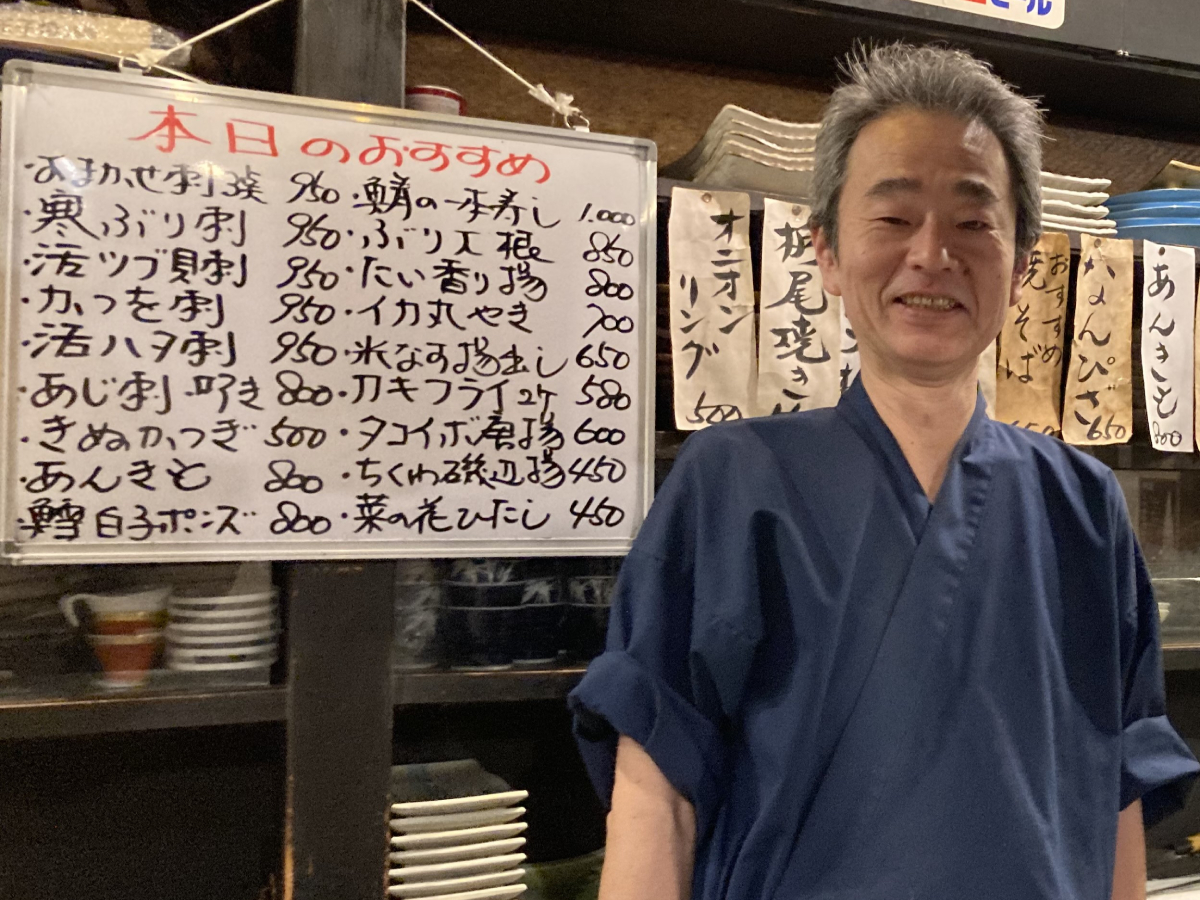 本日のおすすめ
・おまかせ刺3種 950
・寒ぶり刺 950
・活ツブ貝刺 950
・かつを刺 950
・活ハタ刺 950
・あじ刺・叩き 800
・きぬかつぎ 500
・あんきも 800
・鱈白子ポンズ 800
・鯖の一本寿し 1.000
・ぶり大根 850
・たい香り揚 800
・イカ丸やき 700
・米なす揚出し 650
・カキフライ2ケ 580
・タコイボ唐揚 600
・ちくわ磯辺揚 450
・菜の花ひたし 450
オニオン
リング
500
栃尾焼き
おすすめ
焼そば
650
ぴざ
650
あんきも
800